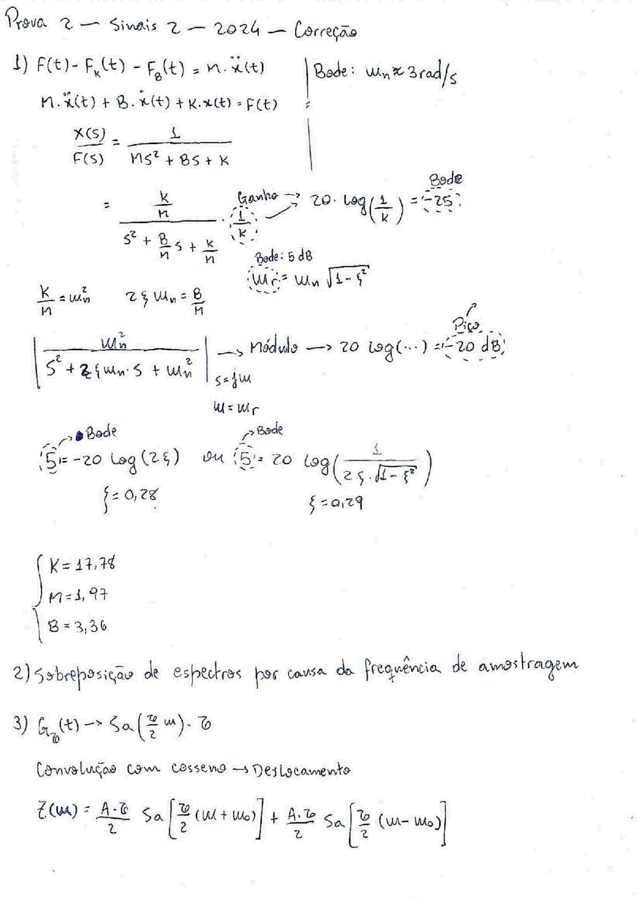 Prova 2 - Sinais 2 - 2024 - Correção
1) F(t) - F_k(t) - F_B(t) = M.ẍ(t) | Bode: ωn ≈ 3 rad/s
M.ẍ(t) + B.ẋ(t) + K.x(t) = F(t)
X(s)/F(s) = 1/(Ms² + Bs + K)
= (K/M)/(s² + (B/M)s + K/M) · (1/K) Ganho → 20·log(1/K) = -25 Bode
K/M = ωn² 2ξωn = B/M Bode: 5 dB ωr = ωn √(1-ξ²)
|ωn²/(s² + 2ξωn·s + ωn²)| s=jω → Módulo → 20 log(...) = -20 dB Pico
ω = ωr
5 = -20 log(2ξ) ou 5 = 20 log(1/(2ξ.√(1-ξ²))) → Bode → Bode
ξ = 0,28 ξ = 0,29
K = 17,78
M = 1,97
B = 3,36
2) Sobreposição de espectros por causa da frequência de amostragem
3) G_τ(t) → Sa(τ/2 ω). τ
Convolução com cosseno → Deslocamento
Z(ω) = A.τ/2 Sa[τ/2 (ω + ω0)] + A.τ/2 Sa[τ/2 (ω - ω0)]